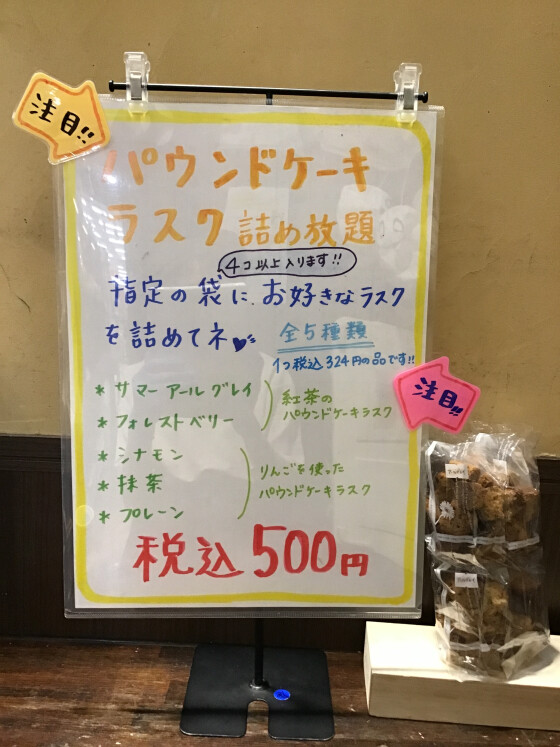 注目!!
パウンドケーキ
ラスク詰め放題
4コ以上入ります!!
指定の袋に、お好きなラスク
を詰めてネ
全5種類
1つ税込324円の品です!!
注目!!
* サマーアールグレイ
* フォレストベリー
紅茶の
パウンドケーキラスク
* シナモン
* 抹茶
* プレーン
りんごを使った
パウンドケーキラスク
税込500円